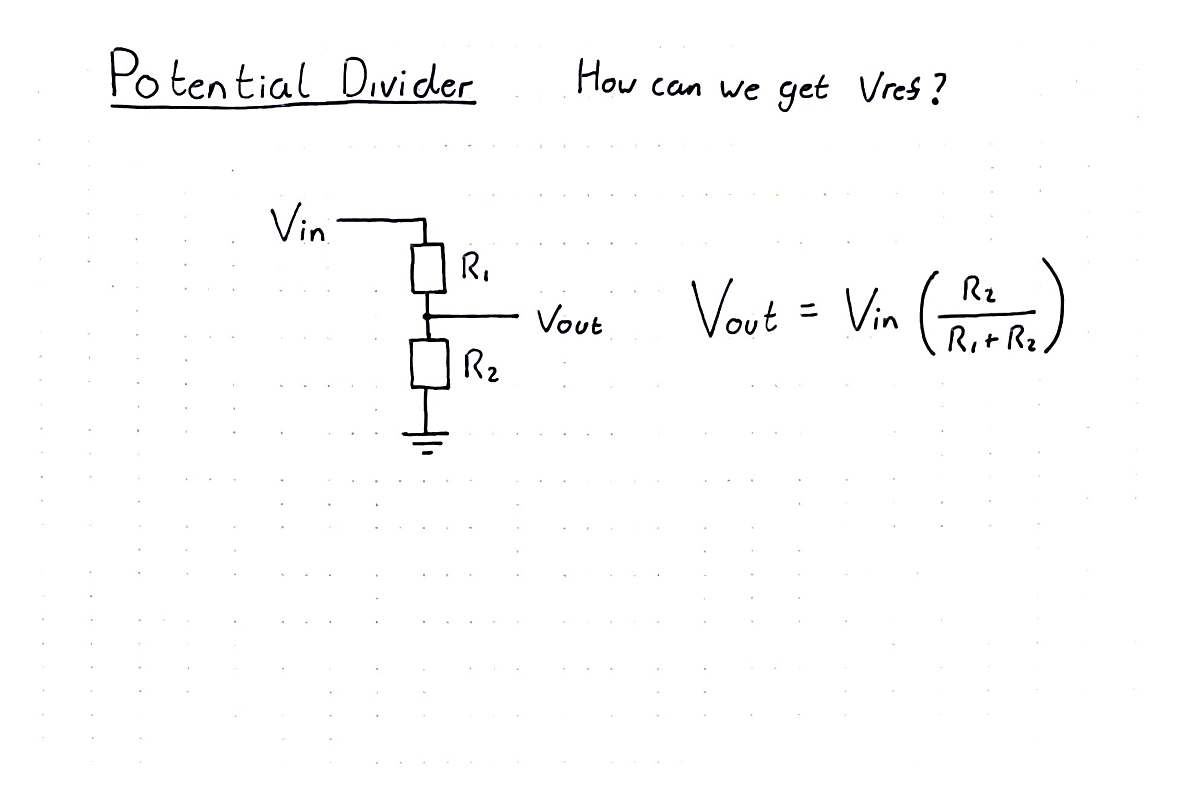 Potential Divider How can we get Vref?
Vin
R1
Vout
R2
Vout = Vin (R2 / R1 + R2)